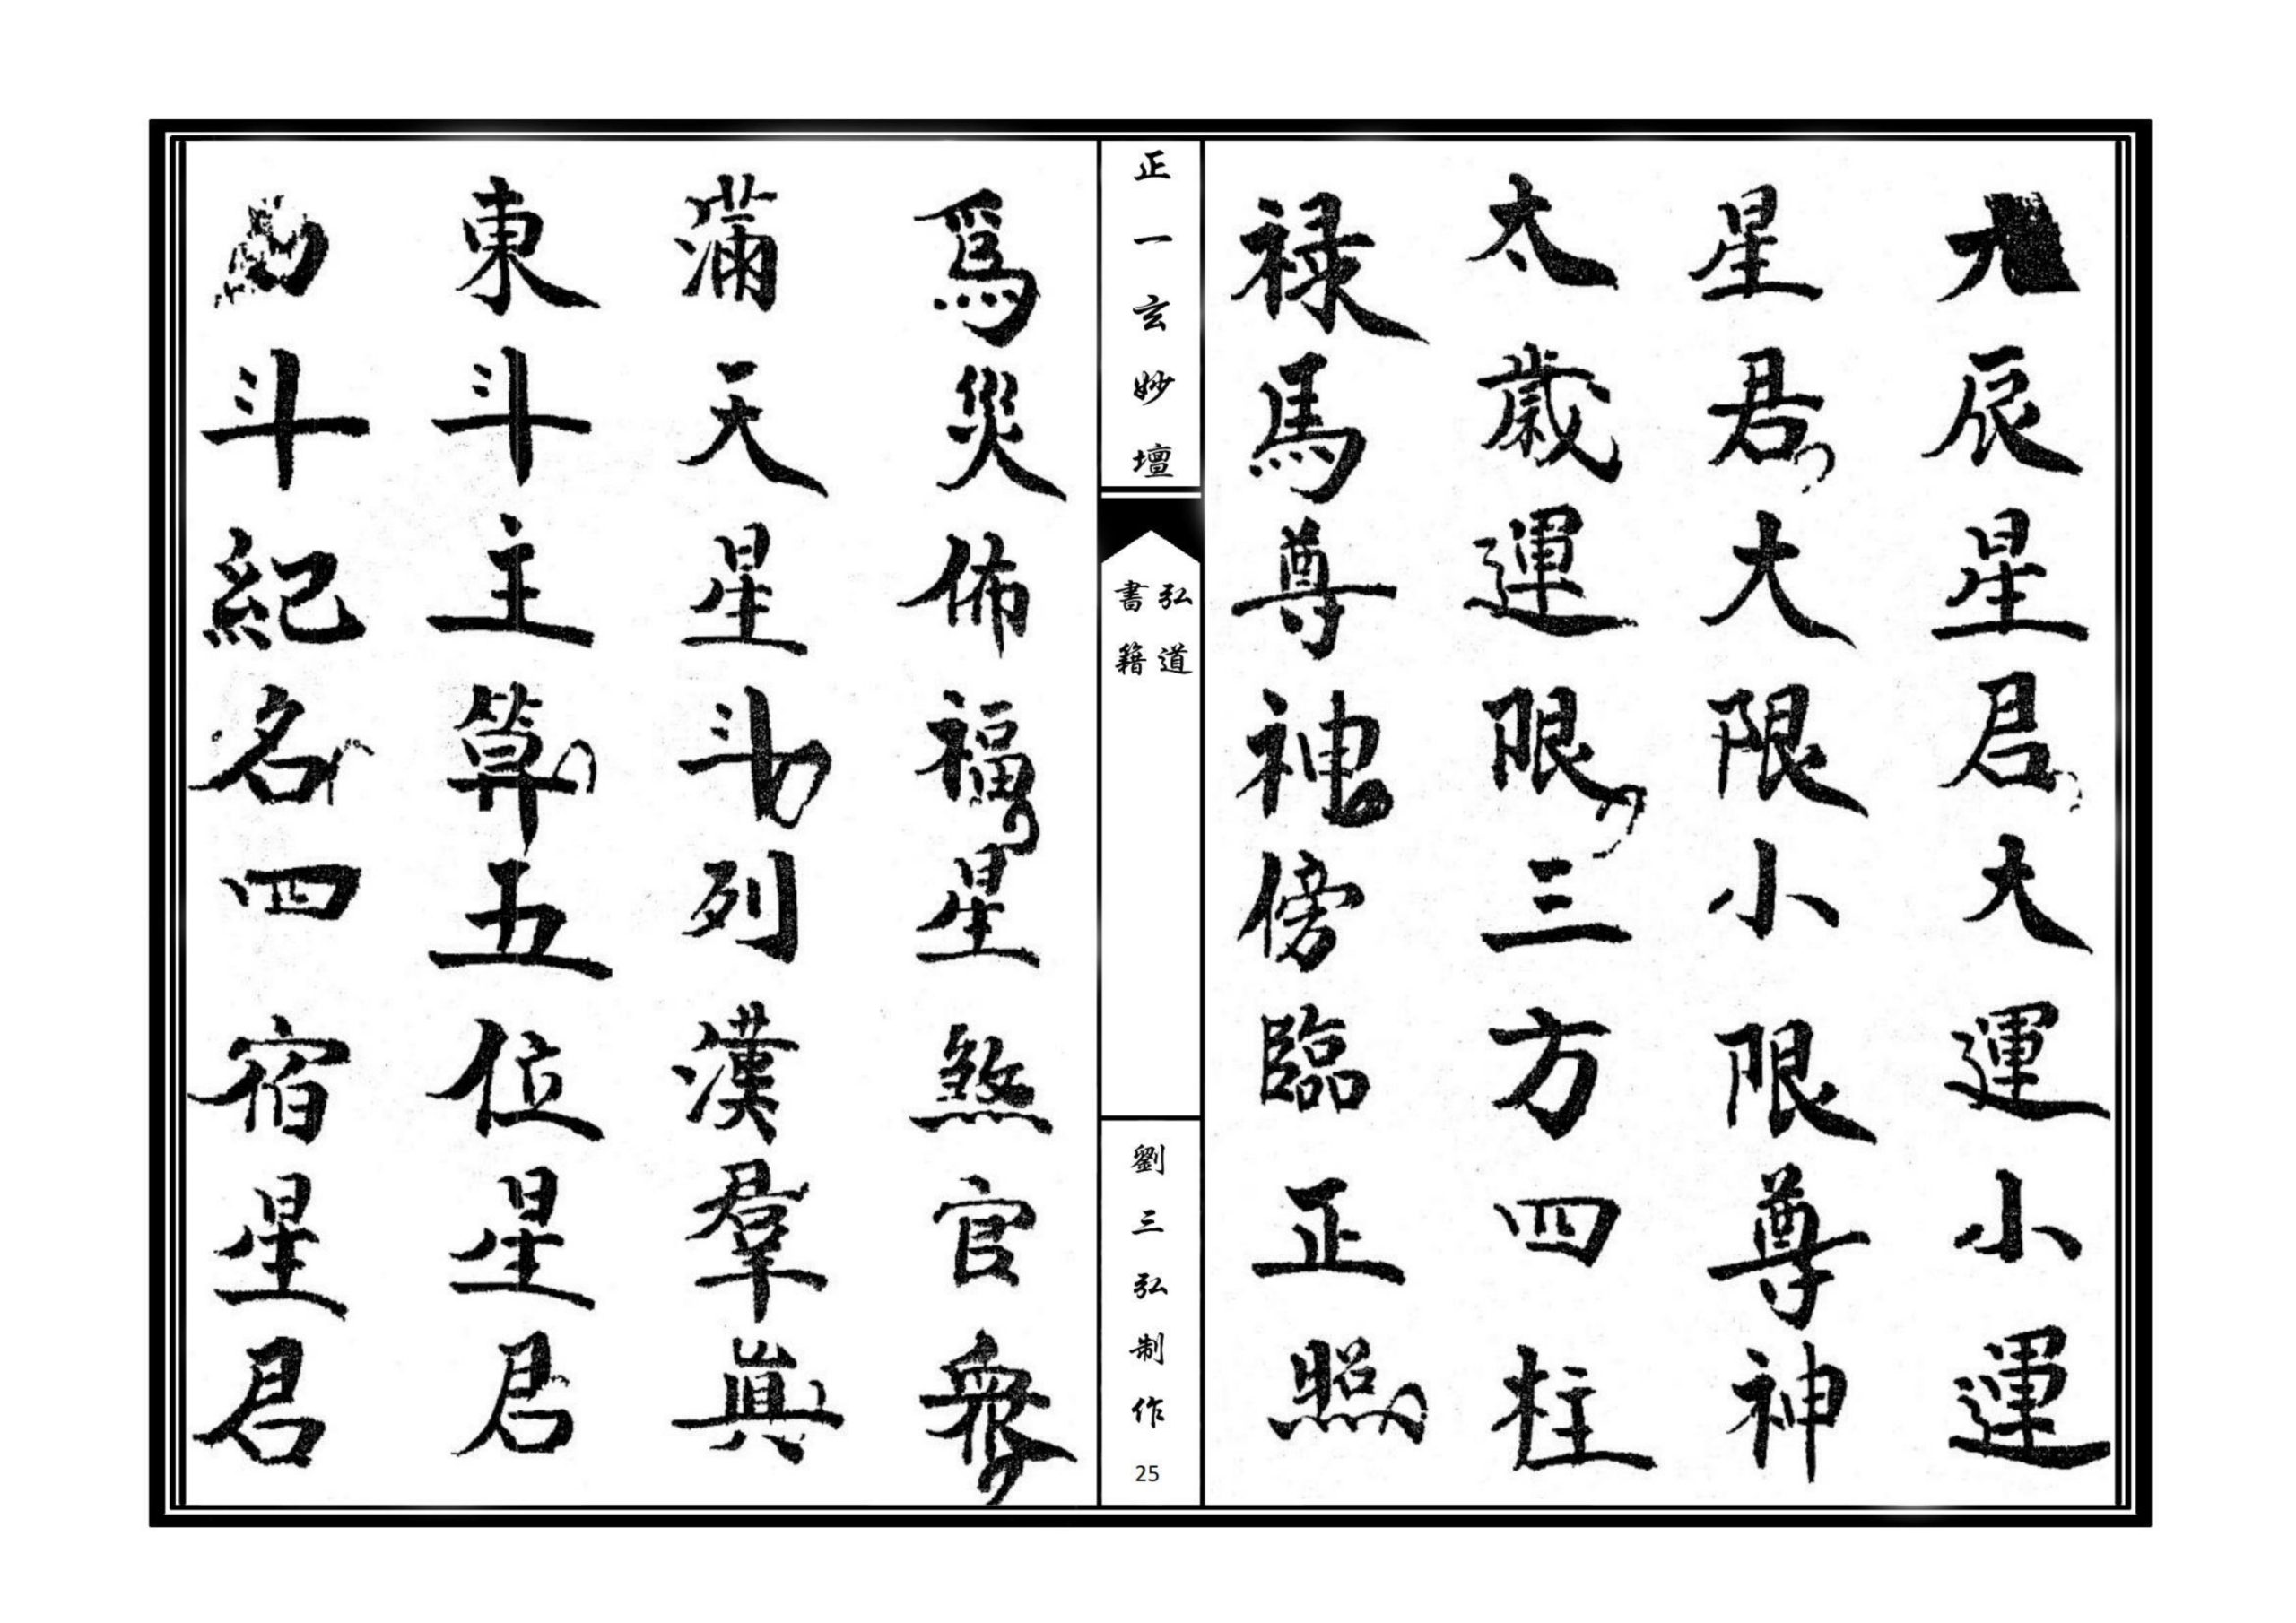 辰星君大運小運
星君大限小限尊神
太歲運限三方四柱
禄馬尊神傍臨正照
正一玄妙壇
弘道
書籍
劉三弘制作
25
爲災佈福星煞官衆
滿天星斗列漢羣眞
東斗主算五位星君
斗紀名四宿星君